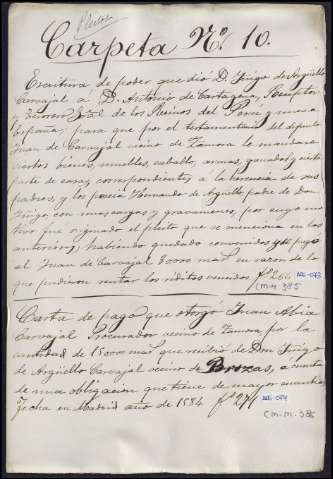 Pleitos
Carpeta Nº 10.
Escritura de poder que dió D. Iñigo de Argüello
Carvajal á D. Antonio de Cartagena, Receptor
y Tesorero Gral de los Reinos del Perú y nueva
España, para que por el testamentario del difunto
Juan de Carvajal vecino de Zamora le mandare
ciertos bienes, muebles, caballos, armas, ganados, y sexta
parte de casas, correspondientes á la herencia de sus
padres, y los poseia Hernando de Argüello padre de Don
Iñigo, con mas cargos y gravamenes, por cuyo mo
tivo fue originado el pleito que se menciona en las
anteriores, habiendo quedado convenidos
el Juan de Carvajal 80000 mas en razon de lo
que pudieron rentar los réditos vencidos. fº 264
C.M.M. 385
Carta de pago que otorgó Juan
Carvajal Procurador vecino de Zamora por la
cantidad de 15000 mas que recibió de Don Iñigo
de Argüello Carvajal vecino de Brozas, á cuenta
de una obligacion que tiene de mayor cuantia
fecha en Madrid año de 1584 fº 271
C.M.M. 385